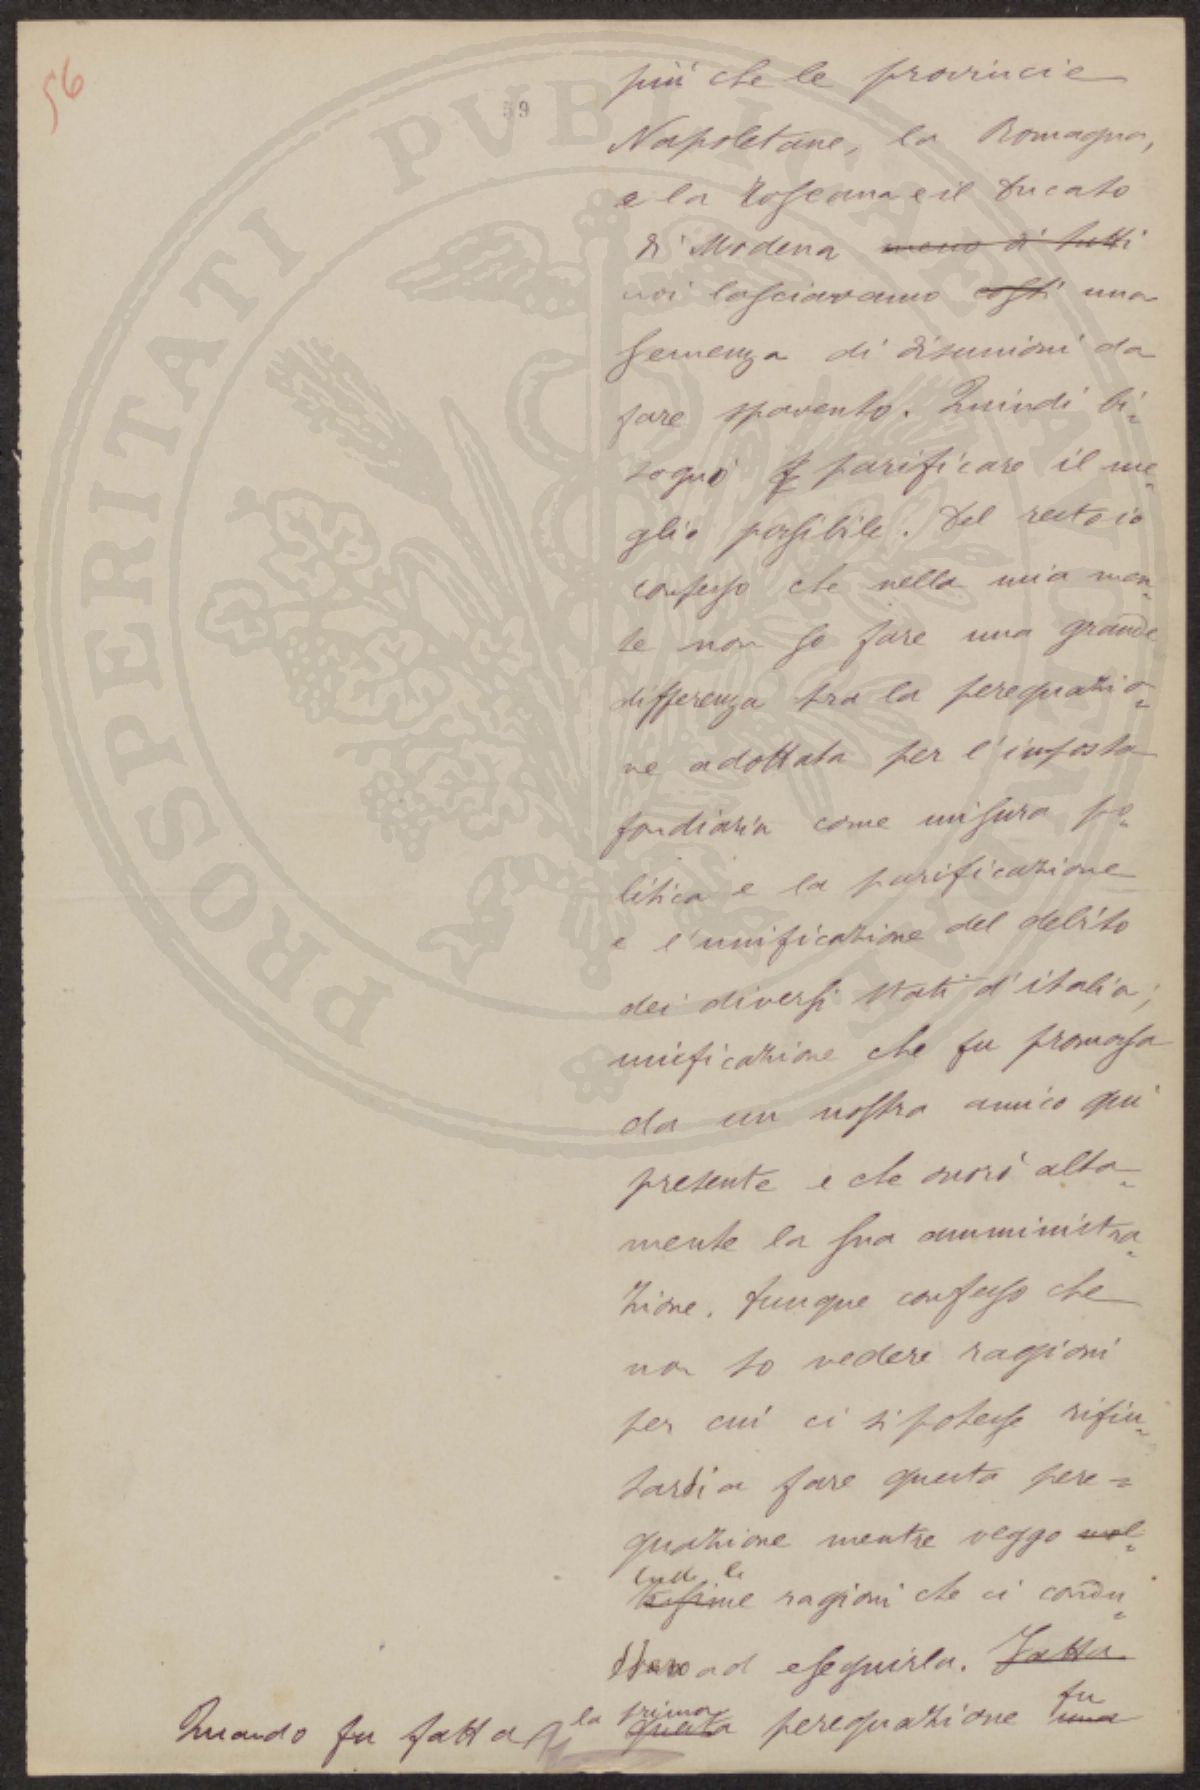 56
59
più che le provincie
Napoletane, la Romagna,
e la Toscana e il Ducato
di Modena meno di tutti
noi lasciavamo costi una
semenza di disunioni da
fare spavento. Quindi bi=
sognò parificare il me=
glio possibile. Del resto io
confesso che nella mia men=
te non so fare una grande
differenza tra la perequazio=
ne adottata per l'imposta
fondiaria come misura po=
litica e la parificazione
e l'unificazione del debito
dei diversi Stati d'italia;
unificazione che fu promossa
da un nostro amico qui
presente e che onorò alta=
mente la sua amministra=
zione. Dunque confesso che
non so vedere ragioni
per cui ci si potesse rifiu=
tarsi a fare questa pere=
quazione mentre veggo mol=
tissime ragioni che ci condu=
ad eseguirla. Fatta
Quando fu fatta la prima questa perequazione fu una
PROSPERITATI PVBLICAE AVGENDAE